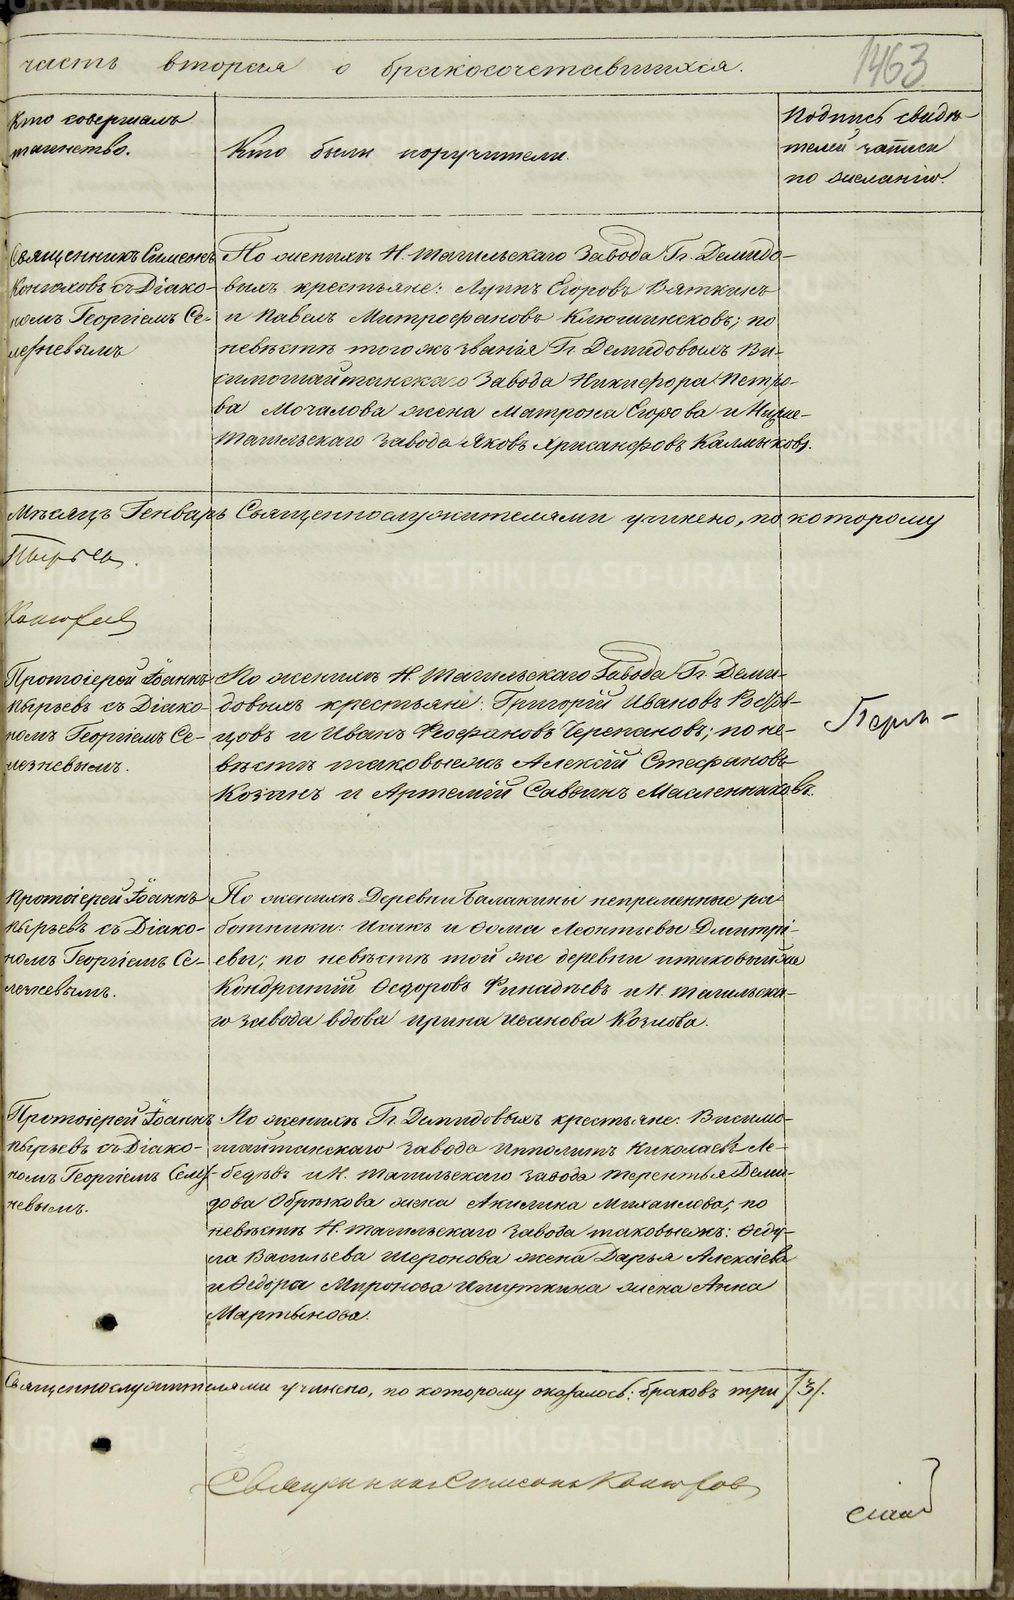 часть вторая о бракосочетавшихся.
1463
Кто совершалъ
таинство.
Кто были поручители.
Подпись свидѣ-
телей записи
по желанію.
Священникъ Симеонъ
Конюховъ съ Діако-
номъ Георгіемъ Се-
лезневымъ
По женихѣ Н. Тагильскаго Завода Гг. Демидо-
выхъ крестьяне: Луппъ Егоровъ Вяткинъ
и Павелъ Митрофановъ Ключинсковъ; по
невѣстѣ тогожъ званія Гг. Демидовыхъ Ви-
симошайтанскаго Завода Никифора Петро-
ва Мочалова жена Матрона Егорова и Нижне-
Тагильскаго завода Яковъ Хрисанфовъ Калмыковъ.
Мѣсяцъ Генварь Священнослужителями учинено, по которому
Пырьевъ.
Конюховъ
Протоіерей Іоаннъ
Пырьевъ съ Діако-
номъ Георгіемъ Се-
лезневымъ.
По женихѣ Н. Тагильскаго Завода Гг. Деми-
довыхъ крестьяне: Григорій Ивановъ
цовъ и Иванъ Феофановъ Черепановъ; по не-
вѣстѣ таковыежъ Алексій Стефановъ
Козанъ и Артемій Саввинъ Масленниковъ.
Перм-
Протоіерей Іоаннъ
Пырьевъ съ Діако-
номъ Георгіемъ Се-
лезневымъ.
По женихѣ Деревни Балакиной непременные ра-
ботники: Исакъ и Ѳома Леонтьевы Дмитрі-
евы; по невѣстѣ той же деревни таковый же
Кондратій Ѳедоровъ Финадѣевъ и Н. Тагильска-
го завода вдова Ирина Иванова Козлова.
Протоіерей Іоаннъ
Пырьевъ съ Діако-
номъ Георгіемъ Селез-
невымъ.
По женихѣ Гг. Демидовыхъ крестьяне: Висимо-
шайтанскаго завода Ипполитъ Николаевъ Ле-
бедевъ и Н. Тагильскаго завода Терентья Деми-
дова Обрюхова жена Акилина Михаилова; по
невѣстѣ Н. Тагильскаго Завода таковыежъ: Ѳеду-
ла Васильева Шеронова жена Дарья Алексіева
и Ѳедора Миронова жена Анна
Мартынова.
Священнослужителями учинено, по которому оказалось: браковъ три /3/.
Священникъ Симеонъ Конюховъ
METRIKI.GASO-URAL.RU